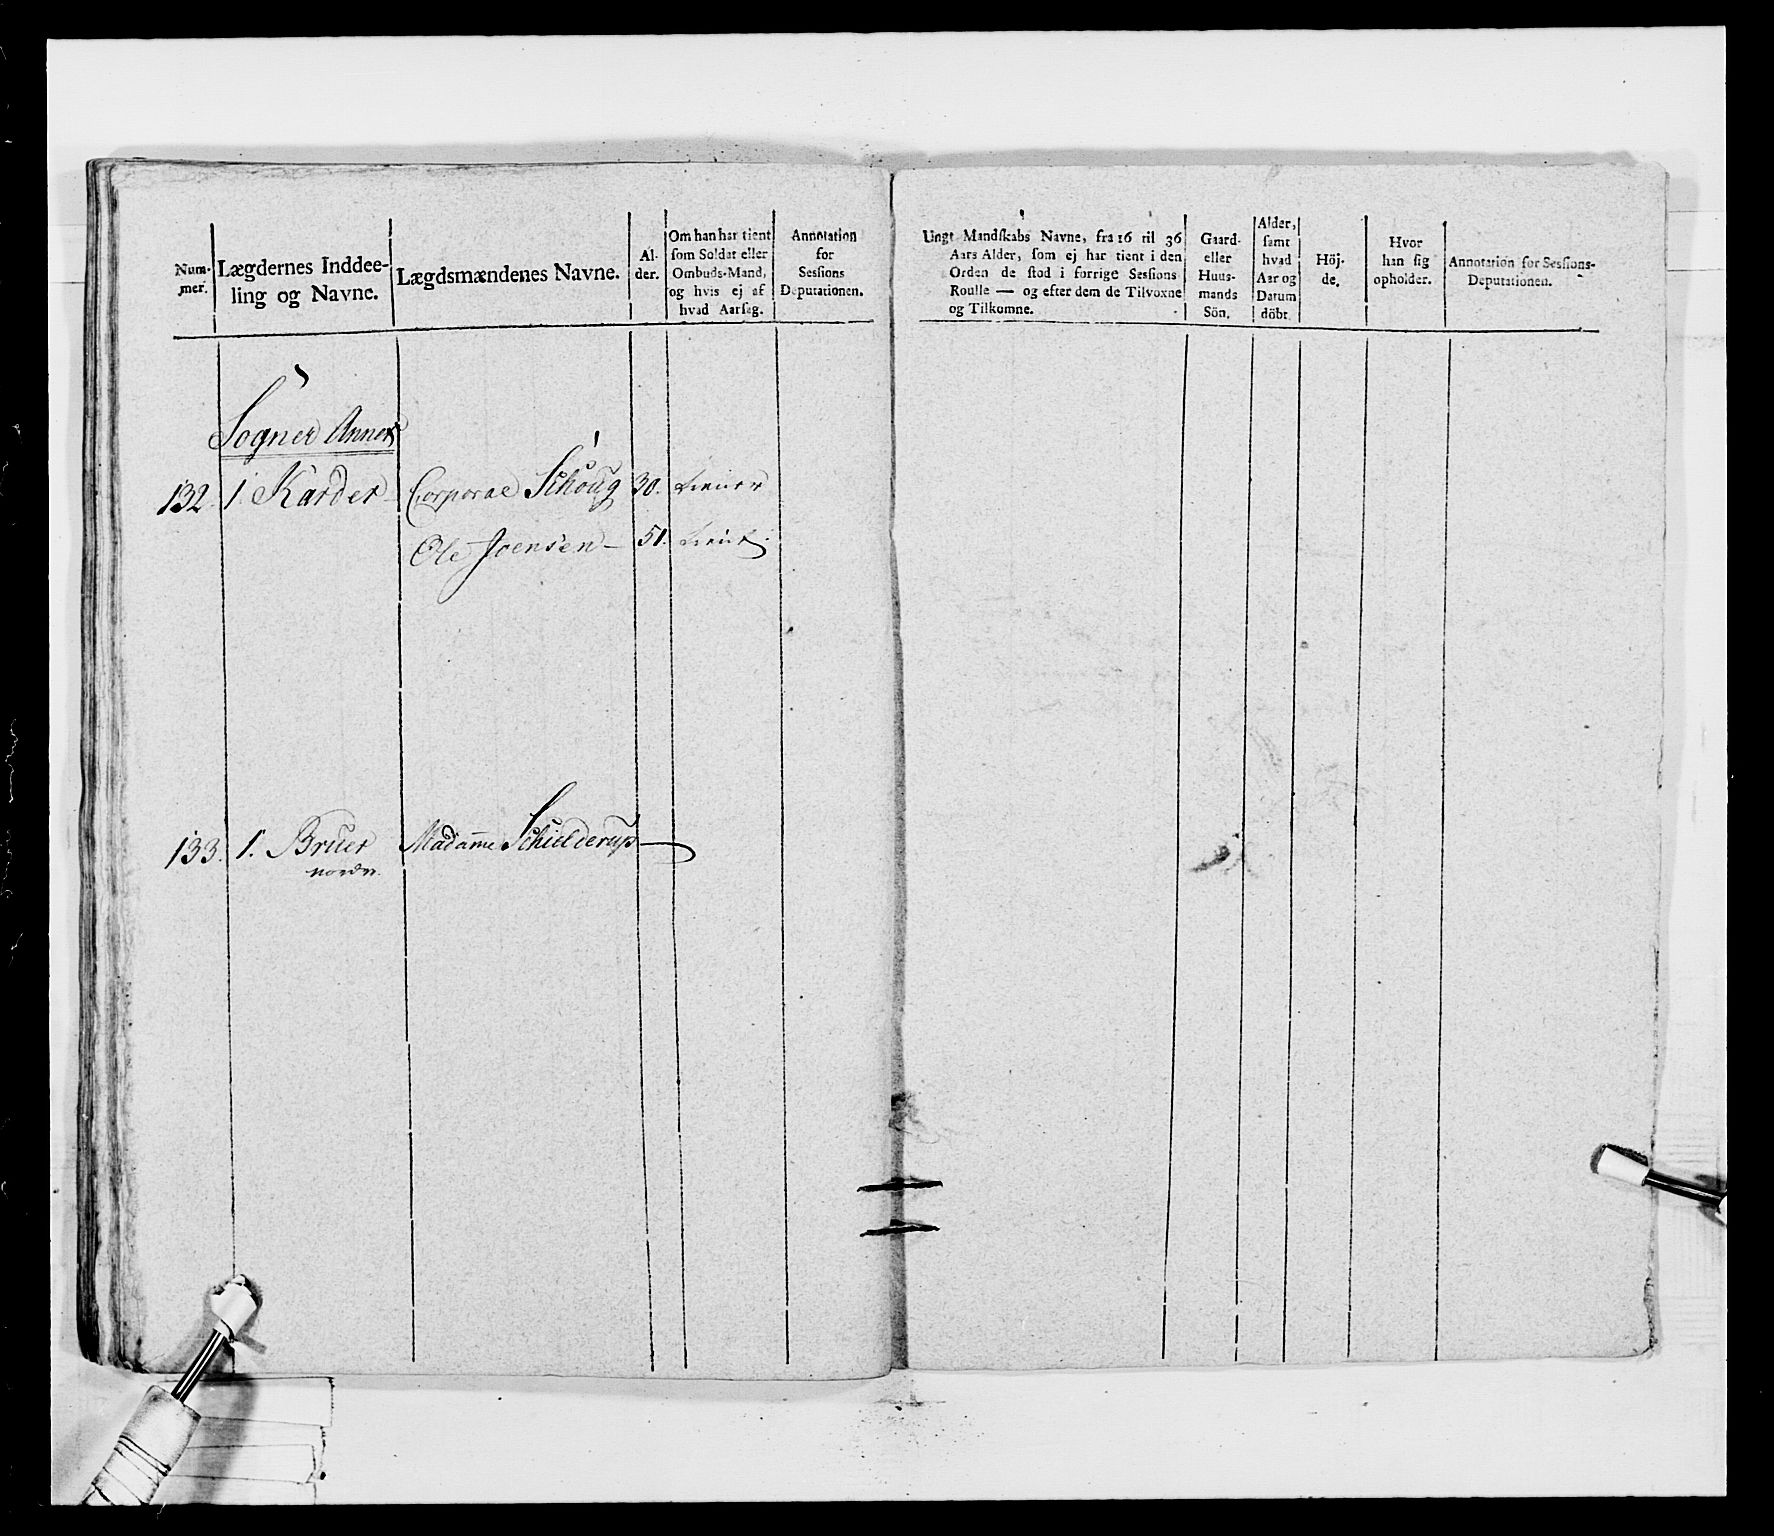 Num-
mer.
Lægdernes Inddee-
ling og Navne.
Lægdsmændenes Navne.
Al-
der.
Om han har tient
som Soldat eller
Ombuds-Mand,
og hvis ej af
hvad Aarsag.
Annotation
for
Sessions
Deputationen.
Sogner Annex
132. 1. Karder Corporal Schoug 30. tiener
Ole Joensen 51. tient.
133. 1. Bruer Madame Schielderup
nordr.
Ungt Mandskabs Navne, fra 16 til 36
Aars Alder, som ej har tient i den
Orden de stod i forrige Sessions
Roulle — og efter dem de Tilvoxne
og Tilkomne.
Gaard-
eller
Huus-
mands
Sön.
Alder,
samt
hvad
Aar og
Datum
döbt.
Höj-
de.
Hvor
han sig
opholder.
Annotation for Sessions-
Deputationen.